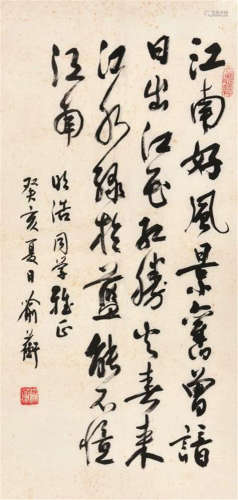 江南好風景舊曾諳
日出江花紅勝火春来
江水綠於藍能不憶
江南
明浩同学雅正
癸亥夏日俞蘅